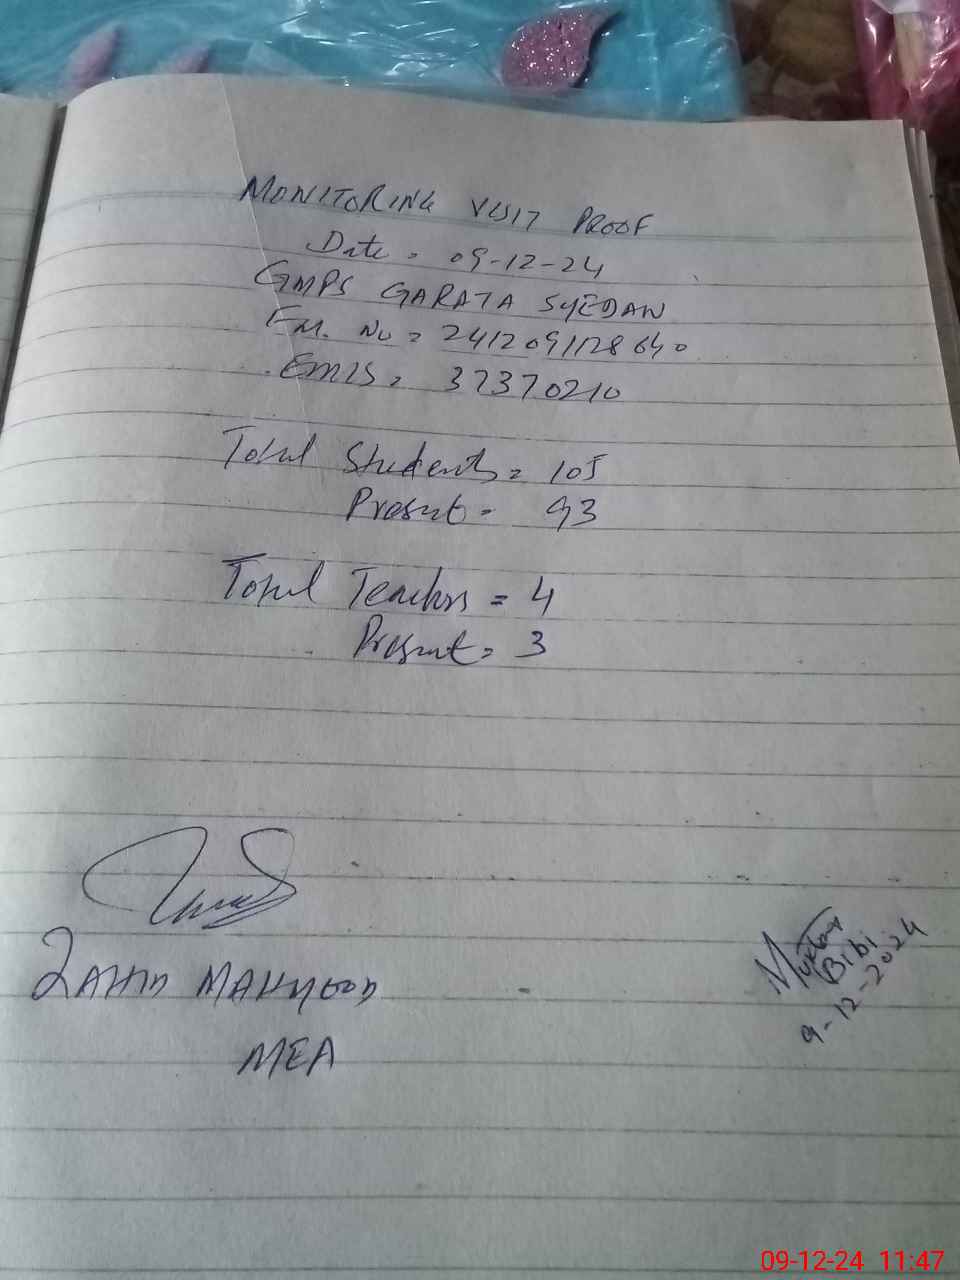 MONITORING VISIT PROOF
Date = 09-12-24
GMPS GARATA SYEDAN
Fm. No = 241209128640
EMIS = 37370210
Total Students = 105
Present = 93
Total Teachers = 4
Present = 3
ZAHID MAHMOOD
MEA
Mukhtar
Bibi
9-12-2024
09-12-24 11:47